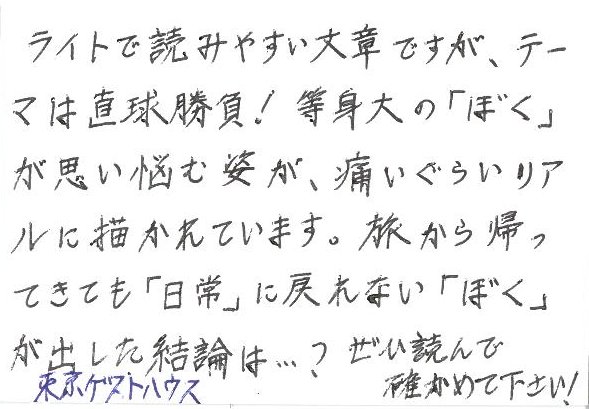 ライトで読みやすい文章ですが、テー
マは直球勝負！等身大の「ぼく」
が思い悩む姿が、痛いぐらいリア
ルに描かれています。旅から帰っ
てきても「日常」に戻れない「ぼく」
が出した結論は…？ぜひ読んで
確かめて下さい！
東京ゲストハウス